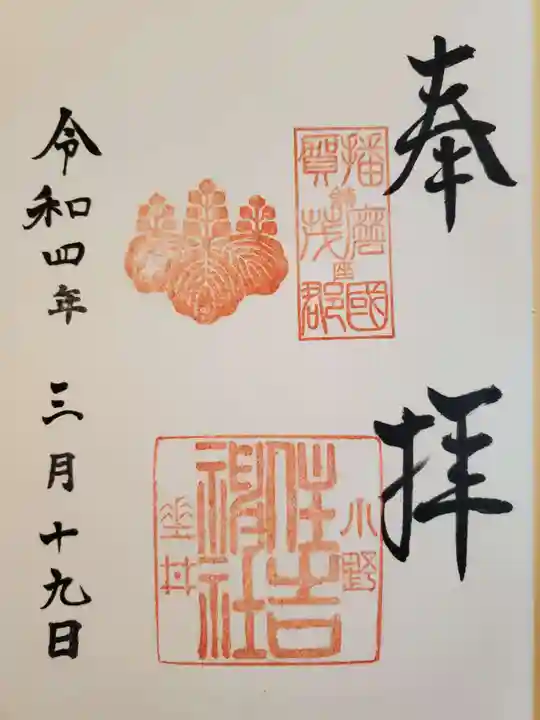 奉拝
播磨國
賀茂郡
鎮座
小野
住吉
神社
垂井
令和四年 三月十九日